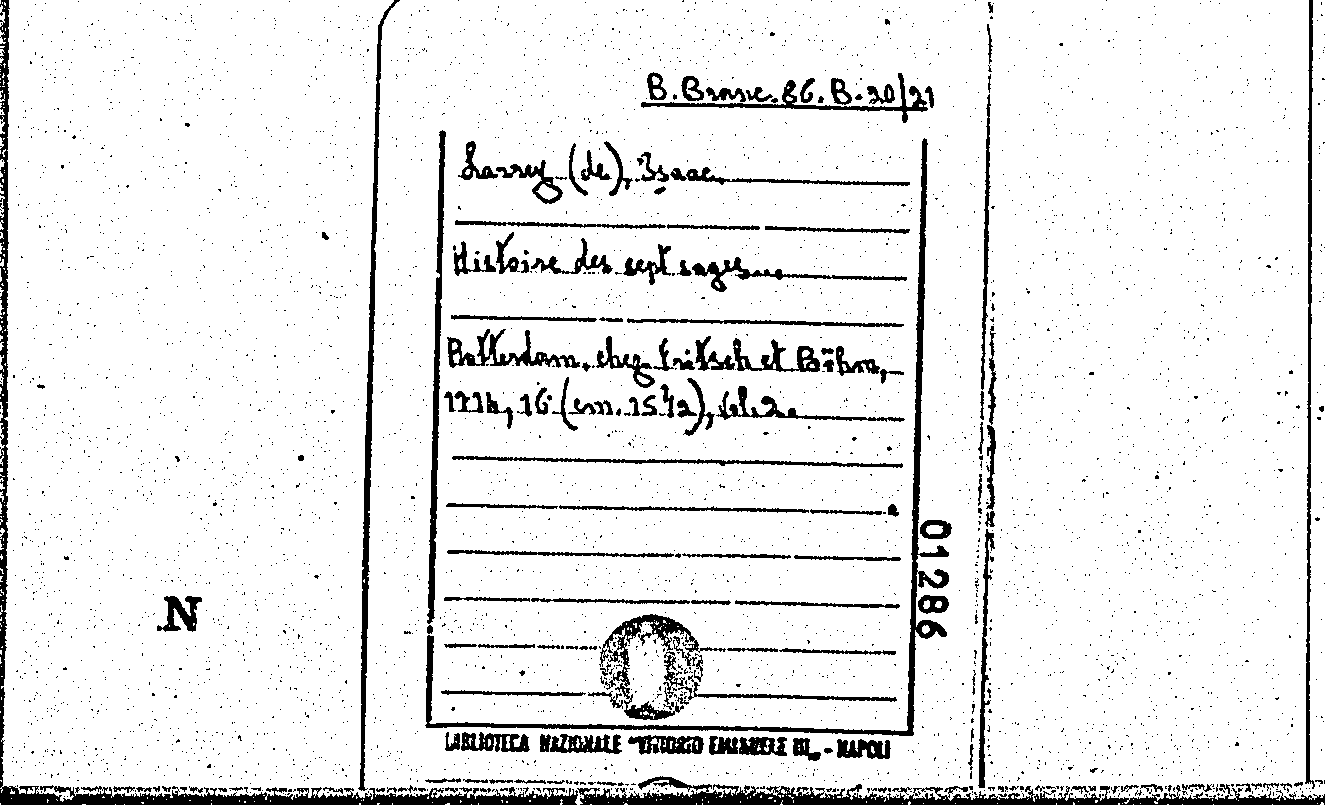 B. Branc. 86. B. 20/21
Larrey (de), Isaac.
Histoire des sept sages...
Rotterdam, chez Fritsch et Böhm,
1714, 16° (cm. 15½), Vol. 2.
01286
N
BIBLIOTECA NAZIONALE "VITTORIO EMANUELE III" - NAPOLI